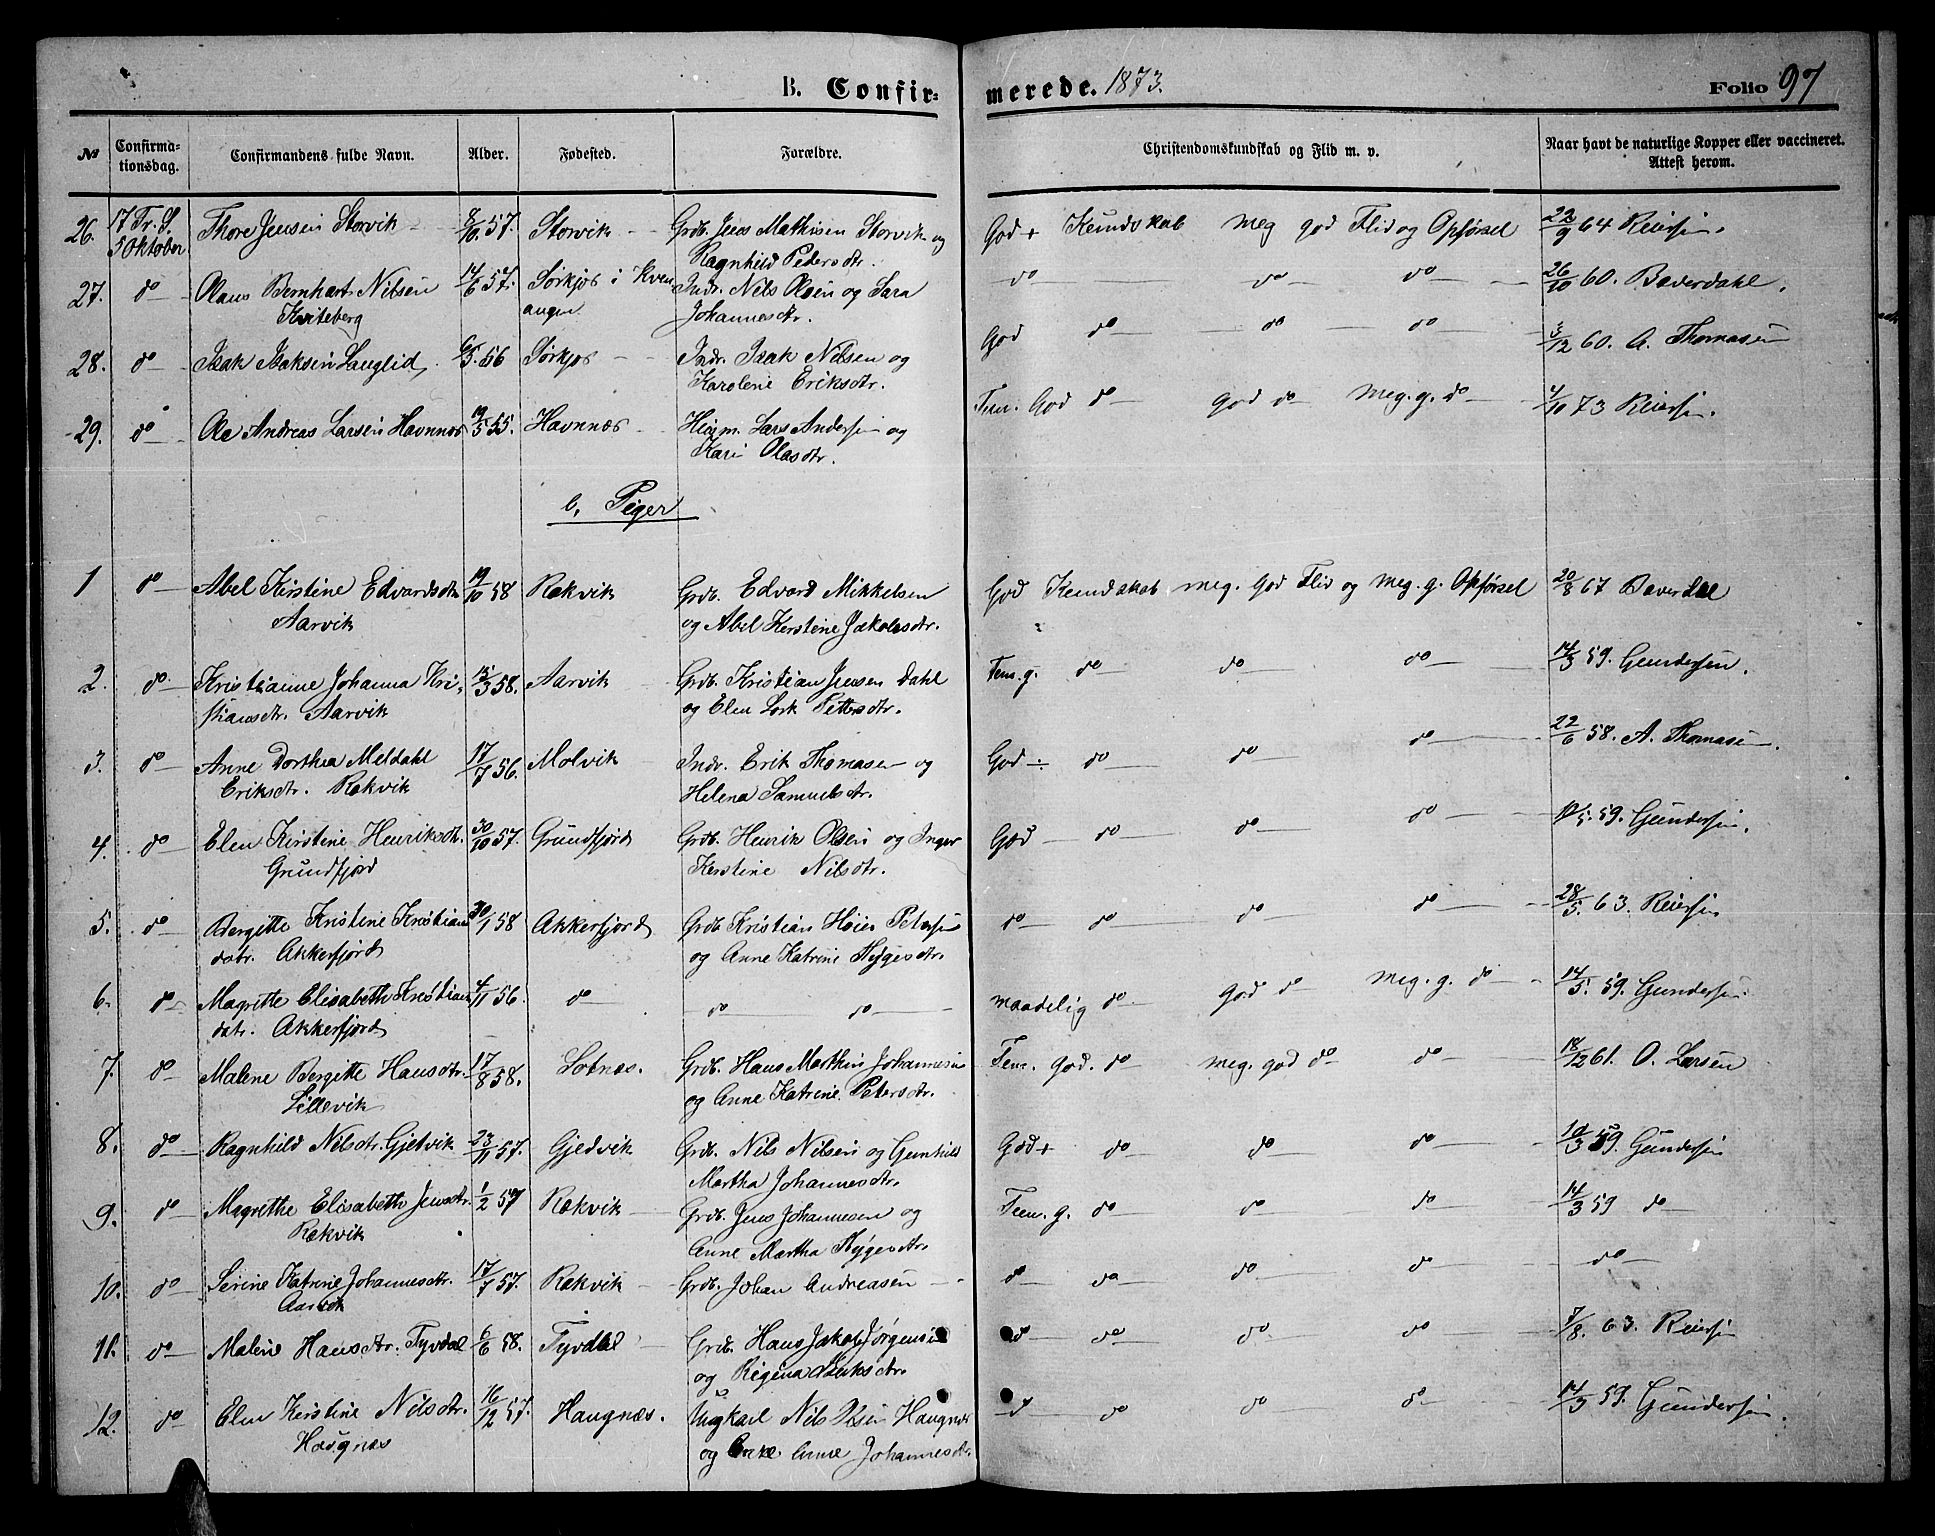 B. Confirmerede. 1873. Folio 97
№ Confirmationsdag. Confirmandens fulde Navn. Alder. Fødested. Forældre. Christendomskundskab og Flid m. v. Naar havt de naturlige Kopper eller vaccineret. Attest herom.
26. 17 Tr. S. Thore Jensen Storvik 8/10 57. Storvik Grdb. Jens Mathisen Storvik og God + Kundskab meg god Flid og Opførsel 22/9 64 Reiersen.
5 Oktober Ragnhild Pedersdtr.
27. do Olaus Bernhart Nilsen 14/6 57. Sørkjos i Kven Indr. Nils Olsen og Sara do do do 26/10 60. Bæverdahl.
Kviteberg angen Johannesdtr.
28. do Isak Isaksen Lauglid 6/5 56 Sørkjos Indr. Isak Nilsen og God do do do 3/12 60. A. Thomasen
Karolene Eriksdtr.
29. do Ole Andreas Larsen Havnnæs 19/5 55. Havnnæs Lars Andersen og Tem. God do god do meg. g. do 4/10 73 Reiersen.
Kari Olasdtr.
b, Piger
1 do Abel Kirstine Edvardsdtr 19/10 58 Rækvik Grdb. Edvard Mikkelsen God Kundskab meg. God Flid og meg. g. Opførsel 20/8 67 Bæverdal
Aarvik og Abel Kerstine Jakobsdtr.
2. do Kristianne Johanna Kri- 13/3 58. Aarvik Grdb. Kristian Jensen Dahl Tem. g. do do do 14/3 59. Gundersen.
stiansdtr. Aarvik og Elen Pettersdtr.
3. do Anne Dorthea Meldahl 17/7 56. Molvik Indr. Erik Thomasen og God ÷ do do do 22/6 58. A. Thomasen.
Eriksdtr. Rækvik Helena Samuelsdtr.
4. do Elen Kirstine Henriksdtr. 30/10 57. Grundfjord Grdb. Henrik Olsen og Inger God do do do 59. Gundersen.
Grundfjord Kerstine Nilsdtr.
5. do Bergitte Kristine Kristian 30/1 58 Akkerfjord Grdb. Kristian Høier Petersen do do do do 28/5. 63. Reiersen
sdtr. Akkerfjord og Anne Katrine Hygesdtr.
6. do Magrette Elisabeth Kristian 4/11 56. do do do maadelig do God do meg. g. do 14/5. 59. Gundersen.
sdtr. Akkerfjord
7. do Malene Bergitte Hansdtr. 17/8 58. Sotnæs. Grdb. Hans Marthin Johannesen Tem. god. do meg. god do do 18/12 61. O. Larsen
Lillevik og Anne Katrine Petersdtr.
8. do Ragnhild Nilsdtr. Gjetvik 23/11 57. Gjedvik Grdb. Nils Nilsen og Gunhild God + do do do 10/3 59. Gundersen
Martha Johannesdtr.
9. do Magrethe Elisabeth Jensdtr. 1/2 57 Rækvik Grdb. Jens Johannesen og Tem. g. do do do 14/3 59 do
Rækvik Anne Martha Hygesdtr.
10. do Serine Katrine Johannesdtr. 17/7 57. Rækvik Grdb. Johan Andreasen do do do do do
Aarvik
11. do Malene Hansdtr. Tyvdal 6/6 58. Tyvdal Grdb. Hans Jakob Jørgensen do do do do 7/8. 63. Reiersen
og Regina
12. do Elen Kerstine Nilsdtr. 16/12 57. Haugnæs. Ungkarl Nils Olsen Haugnæs do do do do 14/3 59. Gundersen.
Haugnæs og Enke Anne Johannesdtr.